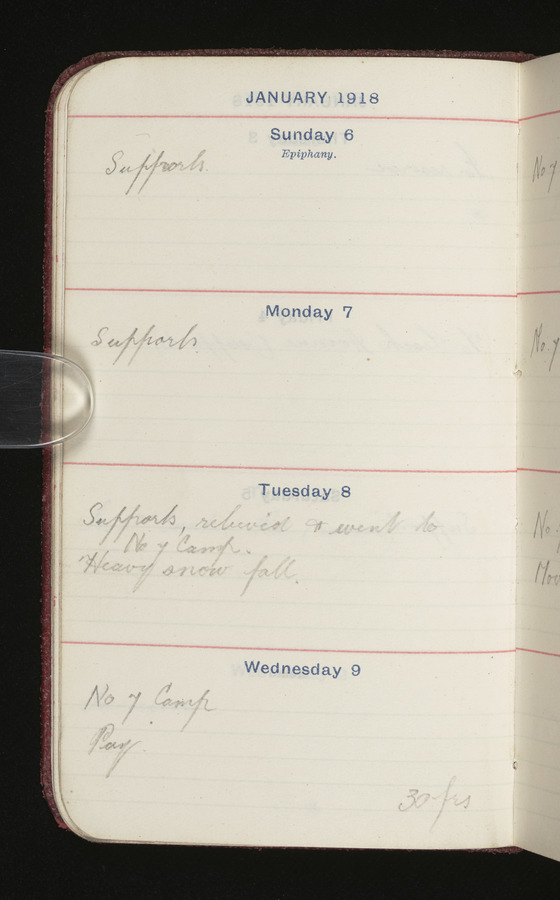 JANUARY 1918
Sunday 6
Epiphany.
Supports.
No 7
Monday 7
Supports
No. 7
Tuesday 8
Supports, reliev'd & went to
No 7 Camp.
Heavy snow fall.
No.
Wednesday 9
No 7 Camp
Pay.
30 frs